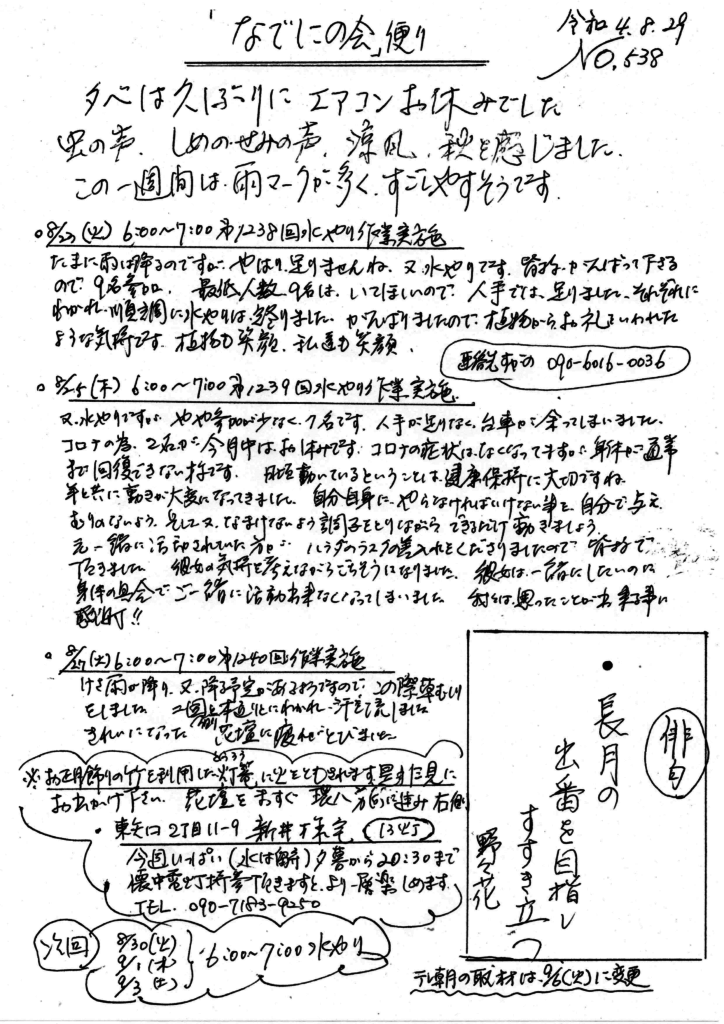 「なでしこの会」便り
令和4.8.29
NO.538
夕べは久しぶりに エアコンお休みでした
虫の声、しめのせみの声、涼風、秋を感じました、
この一週間は、雨マークが多く、すごしやすそうです。
○8/23(火) 6:00〜7:00 第1238回水やり作業実施
たまに雨は降るのですが、やはり足りませんね、又、水やりです。皆様、がんばって下さる
ので 9名参加、最低人数 9名は、いてほしいので、人手では、足りました、それぞれに
わかれ、順調に水やりは、終りました、がんばりましたので、植物からお礼といわれた
ような気持です、植物も笑顔、私達も笑顔、
090-6016-0036
○8/25(木) 6:00〜7:00 第1239回水やり作業実施
又、水やりですが、やや参加が少なく、7名です、人手が足りなく、台車が余ってしまいました、
コロナの為、2名が今月中は、お休みです、コロナの症状は、なくなってますが、身体が通常
まで回復できない様です、日頃動いているということは、健康保持に大切ですね
年と共に動きが大変になってきました、自分自身に、やらなければいけない事を、自分で与え、
むりのないよう、そして又、なまけないよう調子をとりながら できるだけ動きましょう、
元一緒に活動されていた方が、ハラダのラスクの差入れをくださりましたので、皆様で
下きました、彼女の気持を考えながらごちそうになりました、彼女は、一緒にしたいのに
身体の具合でご一緒に活動出来なくなってしまいました、
○8/27(土) 6:00〜7:00 第1240回作業実施
けさ雨が降り、又、降る予定があるようですので、この際草むしり
をしました
きれいになった 花壇に疲れがとびました
※お正月飾りの竹を利用した灯篭に火をともされます是非見に
とうろう
お出かけ下さい、花壇をまっすぐ 環八方向に進み 右側
・東矢口2丁目11-9 新井 様宅
今週いっぱい 夕暮から20:30まで
懐中電灯持参下さいますと、より一層楽しめます、
TEL. 090-7183-9250
次回
8/30(火)
9/1(木)
9/3(土)
6:00〜7:00水やり
俳句
長月の
出番を目指し
すすき立つ
野々花
テレ朝の取材は、9/6(火)に変更